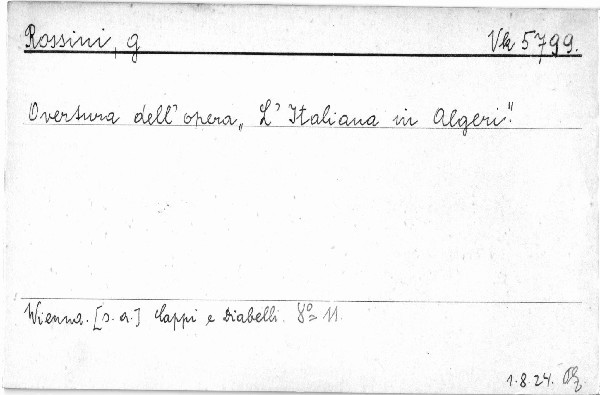 Rossini, G
Vk 5799.
Overtura dell' opera „L' Italiana in Algeri".
Vienna. [s. a.] Cappi e Diabelli. 8° 11.
1.8.24.